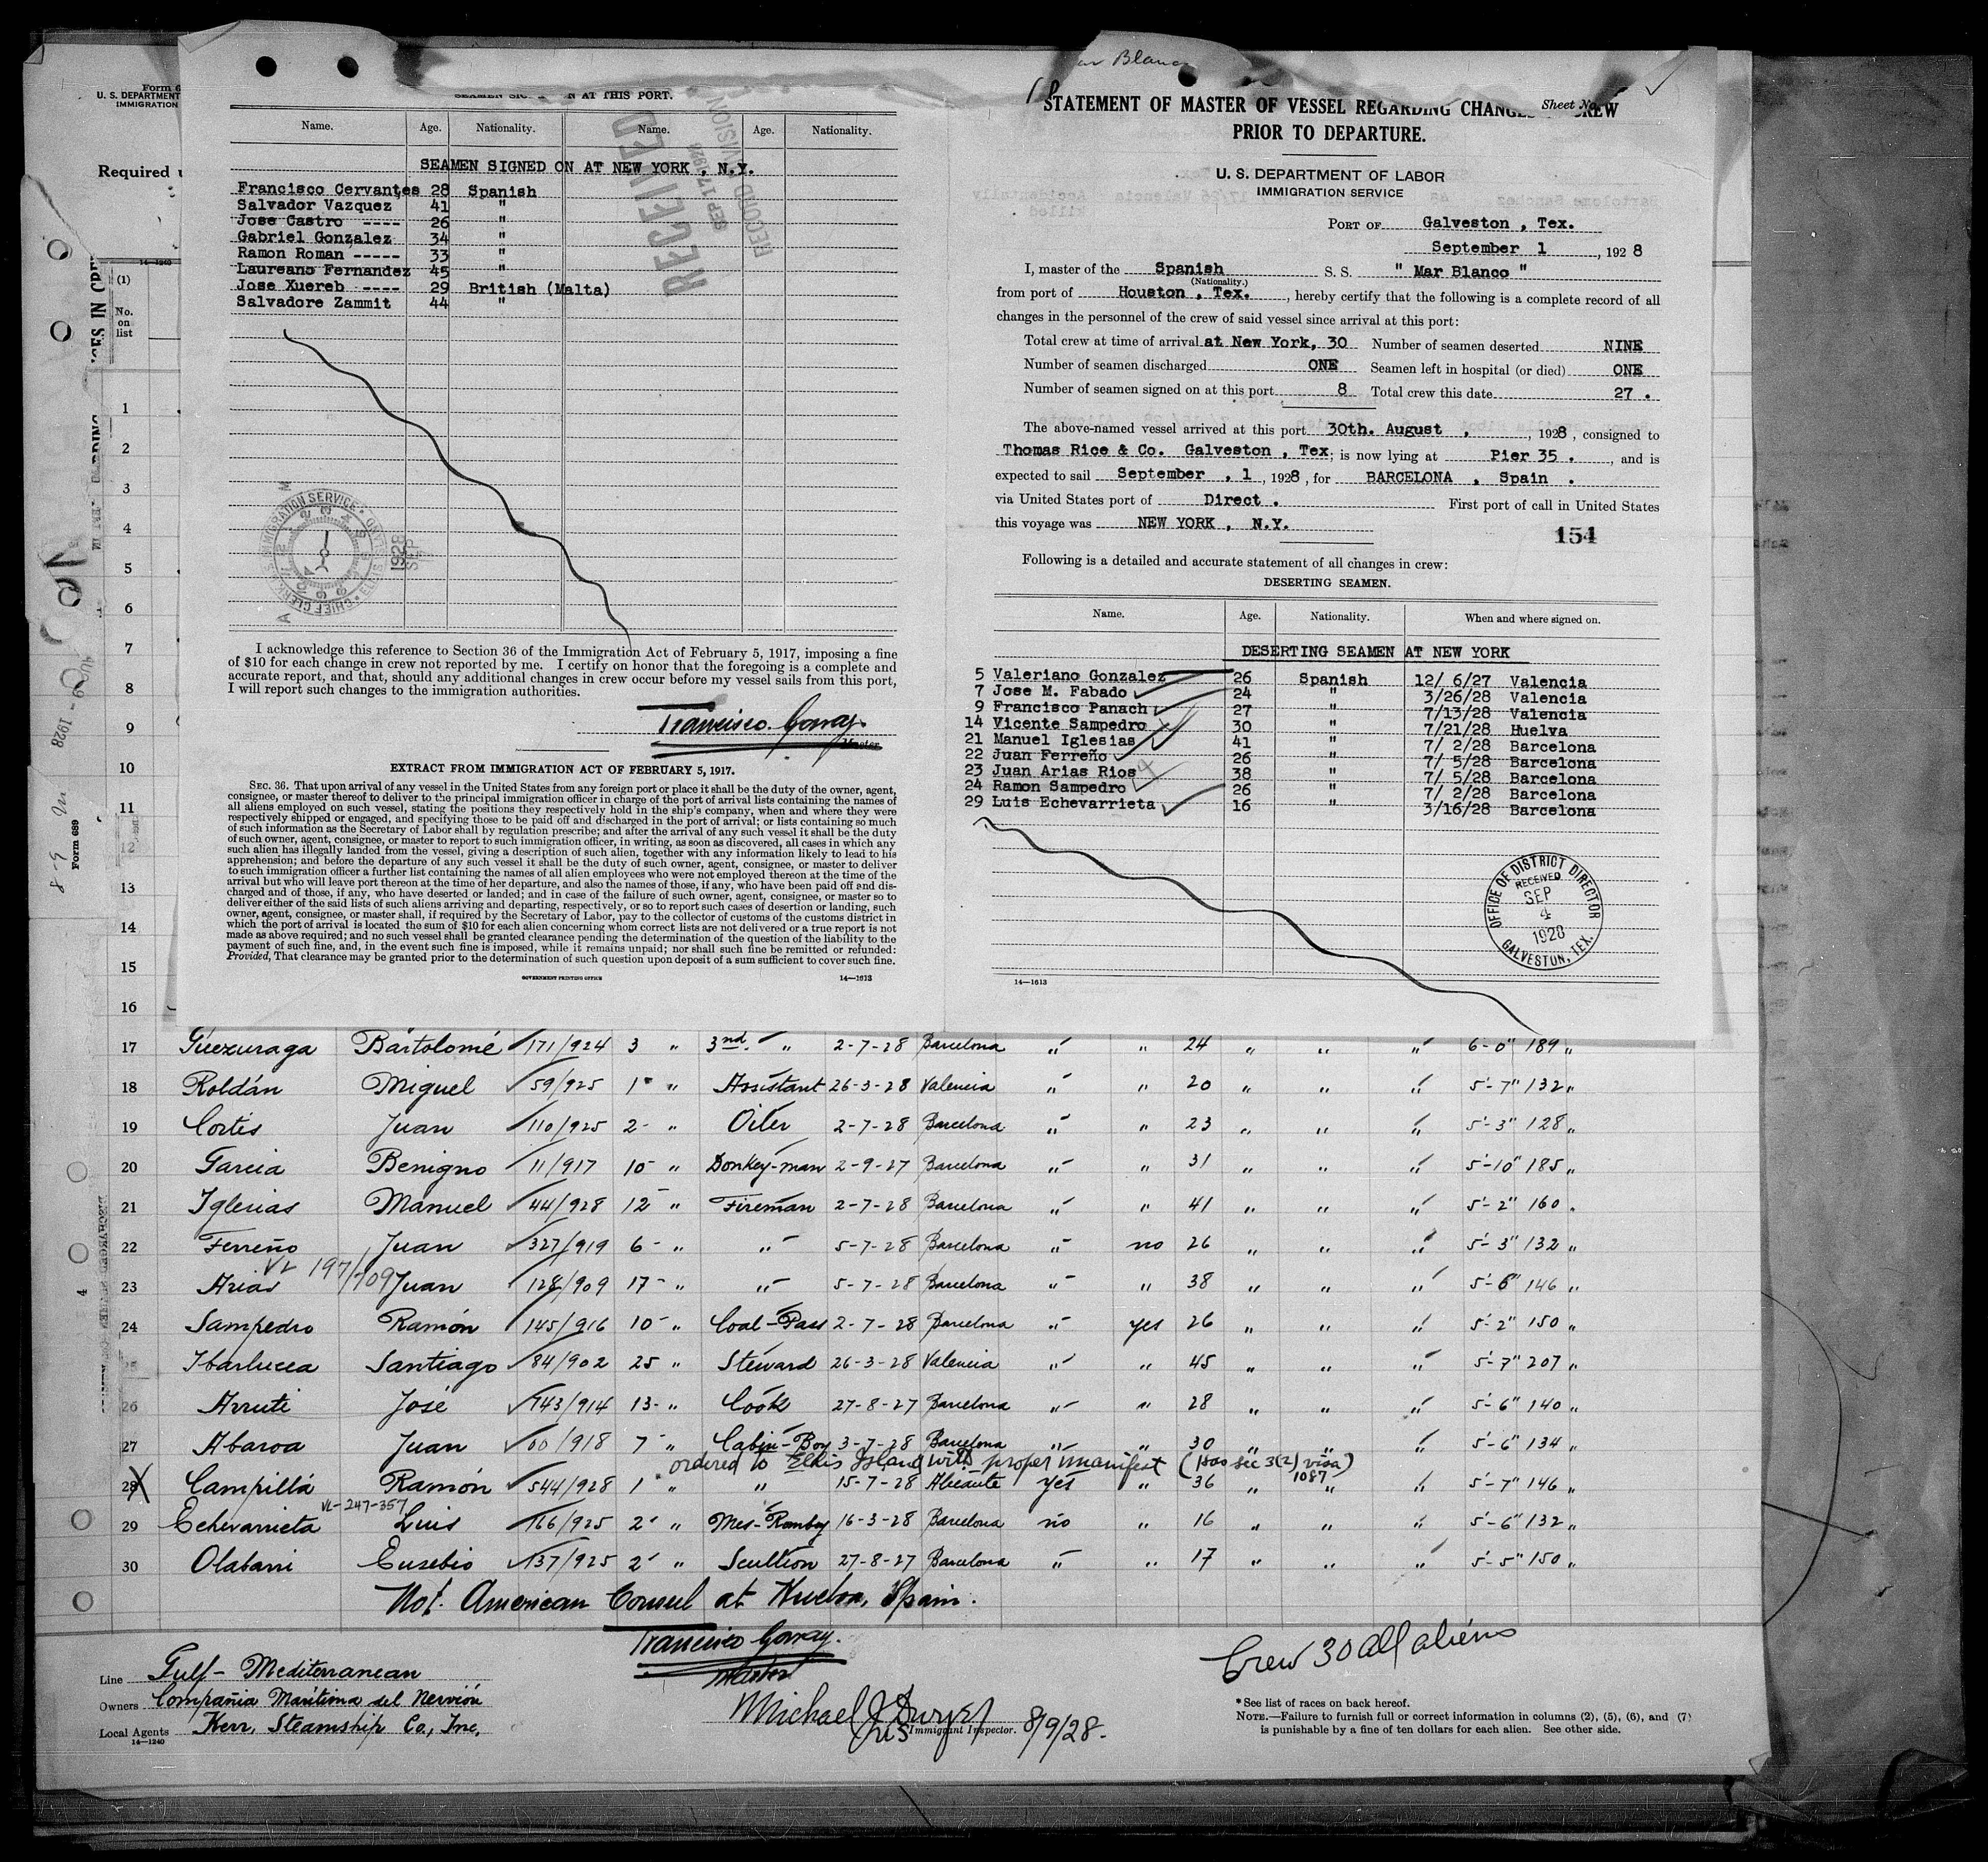 ar Blanco
Form 6
U. S. DEPARTMENT
IMMIGRATION
Required
(1)
No.
on
list
SEAMEN SIG N AT THIS PORT.
Name. Age. Nationality. Name. Age. Nationality.
SEAMEN SIGNED ON AT NEW YORK , N.Y.
Francisco Cervantes 28 Spanish
Salvador Vazquez 41 "
Jose Castro ---- 26 "
Gabriel Gonzalez 34 "
Ramon Roman ----- 33 "
Laureano Fernandez 45 "
Jose Xuereb ---- 29 British (Malta)
Salvadore Zammit 44 "
RECEIVED
SEP 17 1928
RECORD DIVISION
IMMIGRATION SERVICE
CHIEF CLERK
1928
SEP
I acknowledge this reference to Section 36 of the Immigration Act of February 5, 1917, imposing a fine
of $10 for each change in crew not reported by me. I certify on honor that the foregoing is a complete and
accurate report, and that, should any additional changes in crew occur before my vessel sails from this port,
I will report such changes to the immigration authorities.
Francisco Gorray.
Master.
EXTRACT FROM IMMIGRATION ACT OF FEBRUARY 5, 1917.
SEC. 36. That upon arrival of any vessel in the United States from any foreign port or place it shall be the duty of the owner, agent,
consignee, or master thereof to deliver to the principal immigration officer in charge of the port of arrival lists containing the names of
all aliens employed on such vessel, stating the positions they respectively hold in the ship's company, when and where they were
respectively shipped or engaged, and specifying those to be paid off and discharged in the port of arrival; or lists containing so much
of such information as the Secretary of Labor shall by regulation prescribe; and after the arrival of any such vessel it shall be the duty
of such owner, agent, consignee, or master to report to such immigration officer, in writing, as soon as discovered, all cases in which any
such alien has illegally landed from the vessel, giving a description of such alien, together with any information likely to lead to his
apprehension; and before the departure of any such vessel it shall be the duty of such owner, agent, consignee, or master to deliver
to such immigration officer a further list containing the names of all alien employees who were not employed thereon at the time of the
arrival but who will leave port thereon at the time of her departure, and also the names of those, if any, who have been paid off and dis-
charged and of those, if any, who have deserted or landed; and in case of the failure of such owner, agent, consignee, or master so to
deliver either of the said lists of such aliens arriving and departing, respectively, or so to report such cases of desertion or landing, such
owner, agent, consignee, or master shall, if required by the Secretary of Labor, pay to the collector of customs of the customs district in
which the port of arrival is located the sum of $10 for each alien concerning whom correct lists are not delivered or a true report is not
made as above required; and no such vessel shall be granted clearance pending the determination of the question of the liability to the
payment of such fine, and, in the event such fine is imposed, while it remains unpaid; nor shall such fine be remitted or refunded:
Provided, That clearance may be granted prior to the determination of such question upon deposit of a sum sufficient to cover such fine.
GOVERNMENT PRINTING OFFICE 14—1613
Sheet No.
STATEMENT OF MASTER OF VESSEL REGARDING CHANGES CREW
PRIOR TO DEPARTURE.
U. S. DEPARTMENT OF LABOR
IMMIGRATION SERVICE
PORT OF Galveston , Tex.
September 1 , 1928
I, master of the Spanish S. S. " Mar Blanco "
(Nationality.)
from port of Houston , Tex. , hereby certify that the following is a complete record of all
changes in the personnel of the crew of said vessel since arrival at this port:
Total crew at time of arrival at New York, 30 Number of seamen deserted NINE
Number of seamen discharged ONE Seamen left in hospital (or died) ONE
Number of seamen signed on at this port 8 Total crew this date 27 .
The above-named vessel arrived at this port 30th. August , , 1928 , consigned to
Thomas Rice & Co. Galveston , Tex; is now lying at Pier 35 . , and is
expected to sail September , 1 , 1928 , for BARCELONA , Spain .
via United States port of Direct . First port of call in United States
this voyage was NEW YORK , N.Y.
154
Following is a detailed and accurate statement of all changes in crew:
DESERTING SEAMEN.
Name. Age. Nationality. When and where signed on.
DESERTING SEAMEN AT NEW YORK
5 Valeriano Gonzalez 26 Spanish 12/ 6/27 Valencia
7 Jose M. Fabado 24 " 3/26/28 Valencia
9 Francisco Panach 27 " 7/13/28 Valencia
14 Vicente Sampedro 30 " 7/21/28 Huelva
21 Manuel Iglesias 41 " 7/ 2/28 Barcelona
22 Juan Ferreño 26 " 7/ 5/28 Barcelona
23 Juan Arias Rios 38 " 7/ 5/28 Barcelona
24 Ramon Sampedro 26 " 7/ 2/28 Barcelona
29 Luis Echevarrieta 16 " 3/16/28 Barcelona
OFFICE OF DISTRICT DIRECTOR
RECEIVED
SEP
4
1928
GALVESTON, TEX.
14—1613
14—1240
Form 689
1
2
3
4
5
6
7
8
9
10
11
12
13
14
15
16
17 Guezuraga Bartolomé 171/924 3 " 3nd. " 2-7-28 Barcelona " " 24 " " " 6-0" 189 "
18 Roldán Miguel 59/925 1 " Assistant 26-3-28 Valencia " " 20 " " " 5'-7" 132 "
19 Cortis Juan 110/925 2- " Oiler 2-7-28 Barcelona " " 23 " " " 5'-3" 128 "
20 Garcia Benigno 11/917 10 " Donkey-man 2-9-27 Barcelona " " 31 " " " 5'-10" 185 "
21 Iglesias Manuel 44/928 12 " Fireman 2-7-28 Barcelona " " 41 " " " 5'-2" 160 "
22 Ferreño Juan 327/919 6- " " 5-7-28 Barcelona " no 26 " " " 5'-3" 132 "
VL 197/109
23 Arias Juan 128/909 17- " " 5-7-28 Barcelona " " 38 " " " 5'-6" 146 "
24 Sampedro Ramón 145/916 10- " Coal-Pass 2-7-28 Barcelona " yes 26 " " " 5'-2" 150 "
25 Ibarlucea Santiago 84/902 25 " Steward 26-3-28 Valencia " " 45 " " " 5'-7" 207 "
26 Arruti José 143/914 13- " Cook 27-8-27 Barcelona " " 28 " " " 5'-6" 140 "
27 Abaroa Juan 60/918 7 " Cabin-Boy 3-7-28 Barcelona " " 30 " " " 5'-6" 134 "
ordered to Ellis Island with proper manifest (Has sec 3(2) visa)
1087
28 Campillá Ramón 544/928 1 " " 15-7-28 Alicante yes " 36 " " " 5'-7" 146 "
VL-247-357
29 Echevarrieta Luis 166/925 2 " Mes-Romboy 16-3-28 Barcelona no " 16 " " " 5'-6" 132 "
30 Olabarri Eusebio 137/925 2 " Scultion 27-8-27 Barcelona " " 17 " " " 5'-5" 150 "
Not. American Consul at Huelva, Spain.
Francisco Gorray.
Master
Crew 30 all aliens
Line Gulf - Mediterranean
Owners Compañia Marítima del Nervión
Local Agents Kerr, Steamship Co., Inc,
14—1240
Michael J Dwyer
Immigrant Inspector. 8/9/28.
*See list of races on back hereof.
NOTE.—Failure to furnish full or correct information in columns (2), (5), (6), and (7)
is punishable by a fine of ten dollars for each alien. See other side.